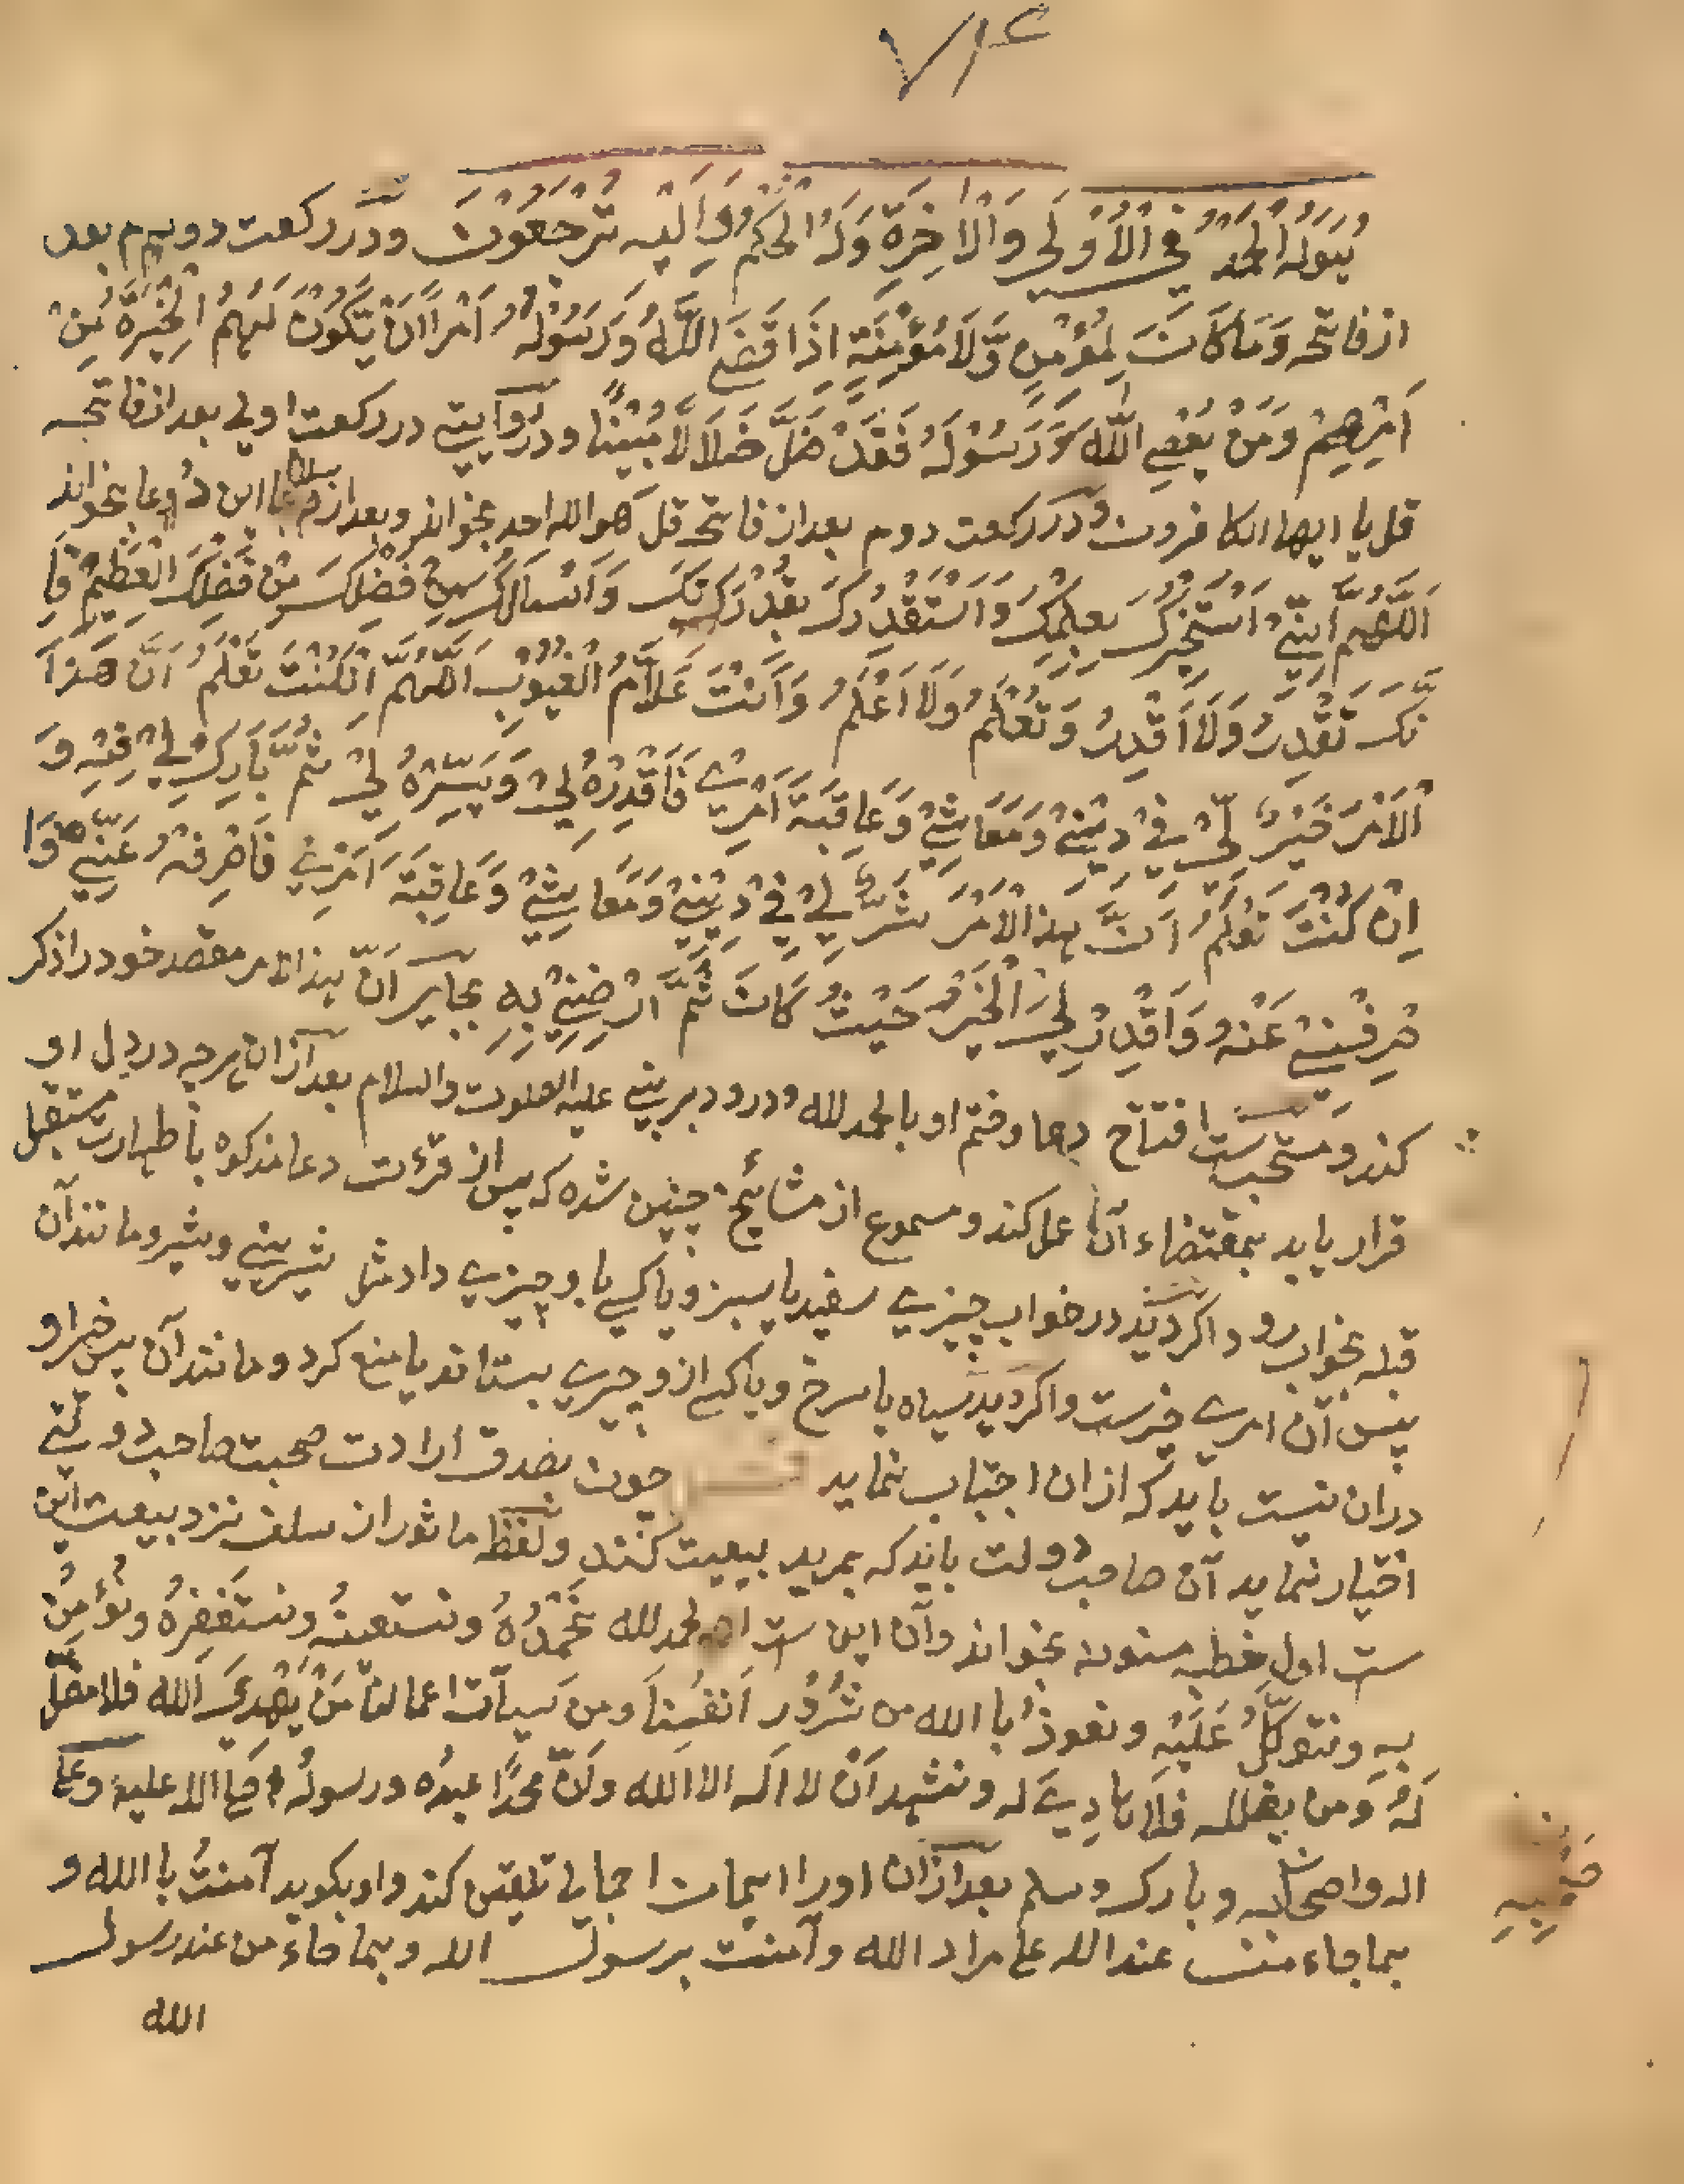 ۷۱۴
هُوَ لَهُ الْحَمْدُ فِي الْاُوْلٰى وَالْاٰخِرَةِ وَلَهُ الْحُكْمُ وَاِلَيْهِ تُرْجَعُوْنَ ودر ركعت دويم بعد
از فاتحه وَمَا كَانَ لِمُؤْمِنٍ وَّلَا مُؤْمِنَةٍ اِذَا قَضَى اللّٰهُ وَرَسُوْلُهٗ اَمْرًا اَنْ يَّكُوْنَ لَهُمُ الْخِيَرَةُ مِنْ
اَمْرِهِمْ وَمَنْ يَعْصِ اللّٰهَ وَرَسُوْلَهٗ فَقَدْ ضَلَّ ضَلَالًا مُّبِيْنًا ودر روايتے در ركعت اولى بعد از فاتحه
قل يا ايها الكافرون ودر ركعت دوم بعد از فاتحه قل هو الله احد بخواند وبعد از سلام اين دعا بخواند
اَللّٰهُمَّ اِنِّيْ اَسْتَخِيْرُكَ بِعِلْمِكَ وَاَسْتَقْدِرُكَ بِقُدْرَتِكَ وَاَسْاَلُكَ مِنْ فَضْلِكَ الْعَظِيْمِ فَاِ
نَّكَ تَقْدِرُ وَلَا اَقْدِرُ وَتَعْلَمُ وَلَا اَعْلَمُ وَاَنْتَ عَلَّامُ الْغُيُوْبِ اَللّٰهُمَّ اِنْ كُنْتَ تَعْلَمُ اَنَّ هٰذَا
الْاَمْرَ خَيْرٌ لِّيْ فِيْ دِيْنِيْ وَمَعَاشِيْ وَعَاقِبَةِ اَمْرِيْ فَاقْدِرْهُ لِيْ وَيَسِّرْهُ لِيْ ثُمَّ بَارِكْ لِيْ فِيْهِ وَ
اِنْ كُنْتَ تَعْلَمُ اَنَّ هذا الْاَمْرَ شَرٌّ لِّيْ فِيْ دِيْنِيْ وَمَعَاشِيْ وَعَاقِبَةِ اَمْرِيْ فَاصْرِفْهُ عَنِّيْ وَا
صْرِفْنِيْ عَنْهُ وَاقْدِرْ لِيَ الْخَيْرَ حَيْثُ كَانَ ثُمَّ اَرْضِنِيْ بِهِ بجاىِ اَنَّ هذا الامر مقصد خود را ذكر
كند و مستحب ست افتتاح دعا وختم او بالحمد لله و درود بر نبى عليه الصلوت والسلام بعد از ان هرچه در دل او
قرار يابد بمقتضاء آن عمل كند و مسموع از مشائخ چنين شده كه پس از قرءت دعا مذكوره با طهارت مستقبل
قبله بخواب رود اكر ديد در خواب چيزے سفيد يا سبز و يا كسے باو چيزے داد مثل شرينے و شير و مانند آن
پس آن امرے خيرست واكر ديد سياه يا سرخ و يا كسے از و چيزے بستاند يا منع كرد و مانند آن پس خير او
دران نيست بايد كه ازان اجتناب نمايد چون بصدق ارادت صحبت صاحب دولتے
اختيار نمايد آن صاحب دولت بايد كه بمريد بيعت كنند و لفظ ماثور از سلف نزد بيعت اين
ست اول خطبه مسنونه بخواند و آن اين ست الحمد لله نَحْمَدُهُ ونستعينُه ونستغفِرهُ ونؤمِنُ
بِهِ ونتوكّلُ عَلَيْهِ ونعوذُ باالله من شُرُوْرِ اَنفُسِنَا ومِن سيأت اعمالنا مَنْ يَهْدِىَ الله فلا مضلَّ
لَهُ وَمن يضلله فلا هادِيَ له ونشهد اَنْ لا اله الا الله واَنّ محمدًا عبدُه ورسولُه صلى الله عليه وعلى
اله واصحابه وبارك وسلم بعد ازان او را ايمان اجمالى تلقين كند و او بكويد آمنتُ باالله و
بما جاء من عند الله على مراد الله و آمنت برسول الله وبما جاء من عند رسول
الله